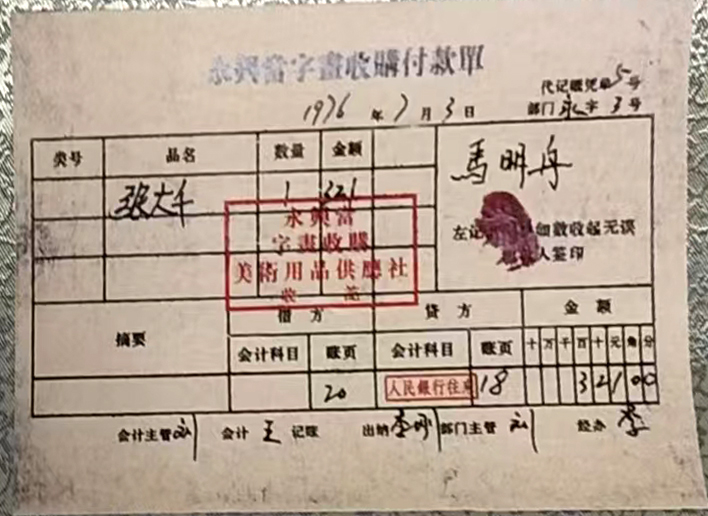 永興當字畫收購付款單
代记账凭单5号
1976年7月3日 部门永字3号
类号 品名 数量 金额
张大千 1 321
馬明舟
永興當
字畫收購
美術用品供應社
收 訖
左记 细数收起无误
人签印
摘要 借方 贷方 金额
会计科目 账页 会计科目 账页 十万千百十元角分
20 人民銀行往来 18 32100
会计主管 会计 王 记账 出纳 李 部门主管 经办 李